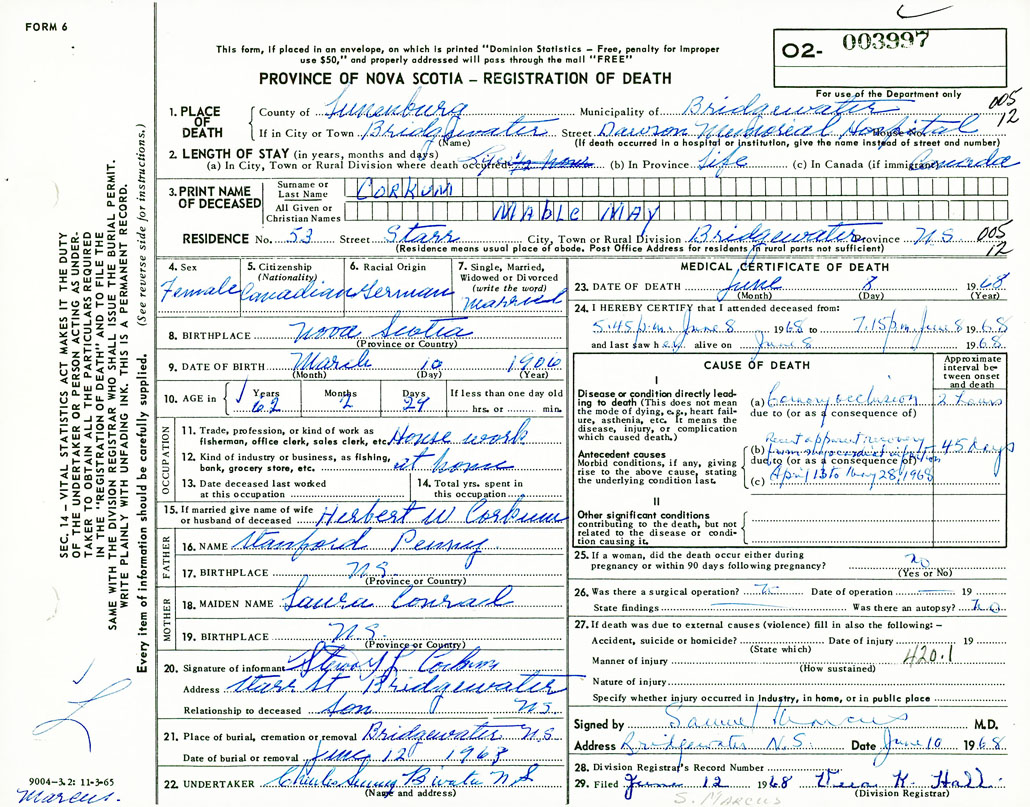 FORM 6
This form, if placed in an envelope, on which is printed "Dominion Statistics – Free, penalty for improper
use $50," and properly addressed will pass through the mail "FREE"
PROVINCE OF NOVA SCOTIA – REGISTRATION OF DEATH
O2- 003997
For use of the Department only
005
12
1. PLACE OF DEATH
County of Lunenburg Municipality of Bridgewater
If in City or Town Bridgewater Street Dawson Memorial Hospital House No.
(Name) (If death occurred in a hospital or institution, give the name instead of street and number)
2. LENGTH OF STAY (in years, months and days)
(a) In City, Town or Rural Division where death occurred (b) In Province life (c) In Canada (if immigrant) Canada
3. PRINT NAME OF DECEASED
Surname or Last Name CORKUM
All Given or Christian Names MABLE MAY
RESIDENCE No. 53 Street Starr City, Town or Rural Division Bridgewater Province N S
005
12
(Residence means usual place of abode, Post Office Address for residents in rural parts not sufficient)
4. Sex Female
5. Citizenship (Nationality) Canadian
6. Racial Origin German
7. Single, Married, Widowed or Divorced (write the word) Married
8. BIRTHPLACE Nova Scotia
(Province or Country)
9. DATE OF BIRTH March 10 1906
(Month) (Day) (Year)
10. AGE in Years 62 Months 2 Days 29 If less than one day old hrs. or min.
OCCUPATION
11. Trade, profession, or kind of work as fisherman, office clerk, sales clerk, etc. House work
12. Kind of industry or business, as fishing, bank, grocery store, etc. at home
13. Date deceased last worked at this occupation
14. Total yrs. spent in this occupation
15. If married give name of wife or husband of deceased Herbert W Corkum
FATHER
16. NAME Stanford Penny
17. BIRTHPLACE N S.
(Province or Country)
MOTHER
18. MAIDEN NAME Laura Conrad
19. BIRTHPLACE N S.
(Province or Country)
20. Signature of informant Corkum
Address Starr St Bridgewater
Relationship to deceased Son N S.
21. Place of burial, cremation or removal Bridgewater N S.
Date of burial or removal June 12 1968
22. UNDERTAKER N S
(Name and address)
MEDICAL CERTIFICATE OF DEATH
23. DATE OF DEATH June 8 1968
(Month) (Day) (Year)
24. I HEREBY CERTIFY that I attended deceased from:
5:45 p.m. June 8 1968 to 7.15 p.m. June 8 1968
and last saw her alive on June 8 1968
CAUSE OF DEATH
Approximate interval between onset and death
I
Disease or condition directly leading to death (This does not mean the mode of dying, e.g., heart failure, asthenia, etc. It means the disease, injury, or complication which caused death.)
(a) Coronary occlusion 2 hours
due to (or as a consequence of)
Antecedent causes
Morbid conditions, if any, giving rise to the above cause, stating the underlying condition last.
(b) 45 days
due to (or as a consequence of)
(c) April 13 to May 28, 1968
II
Other significant conditions contributing to the death, but not related to the disease or condition causing it.
25. If a woman, did the death occur either during pregnancy or within 90 days following pregnancy? no
(Yes or No)
26. Was there a surgical operation? no Date of operation 19
State findings Was there an autopsy? no
27. If death was due to external causes (violence) fill in also the following: –
Accident, suicide or homicide? Date of injury 19
(State which)
Manner of injury 420.1
(How sustained)
Nature of injury
Specify whether injury occurred in industry, in home, or in public place
Signed by Samuel Marcus M.D.
Address Bridgewater N.S. Date June 10 1968.
28. Division Registrar's Record Number
29. Filed June 12 1968 K. Hall
(Division Registrar)
S. MARCUS
SEC. 14 – VITAL STATISTICS ACT MAKES IT THE DUTY
OF THE UNDERTAKER OR PERSON ACTING AS UNDER-
TAKER TO OBTAIN ALL THE PARTICULARS REQUIRED
IN THE "REGISTRATION OF DEATH" AND TO FILE THE
SAME WITH THE DIVISION REGISTRAR WHO SHALL ISSUE THE BURIAL PERMIT.
WRITE PLAINLY WITH UNFADING INK. THIS IS A PERMANENT RECORD.
Every item of information should be carefully supplied. (See reverse side for instructions.)
9004-3.2: 11-3-65
Marcus.